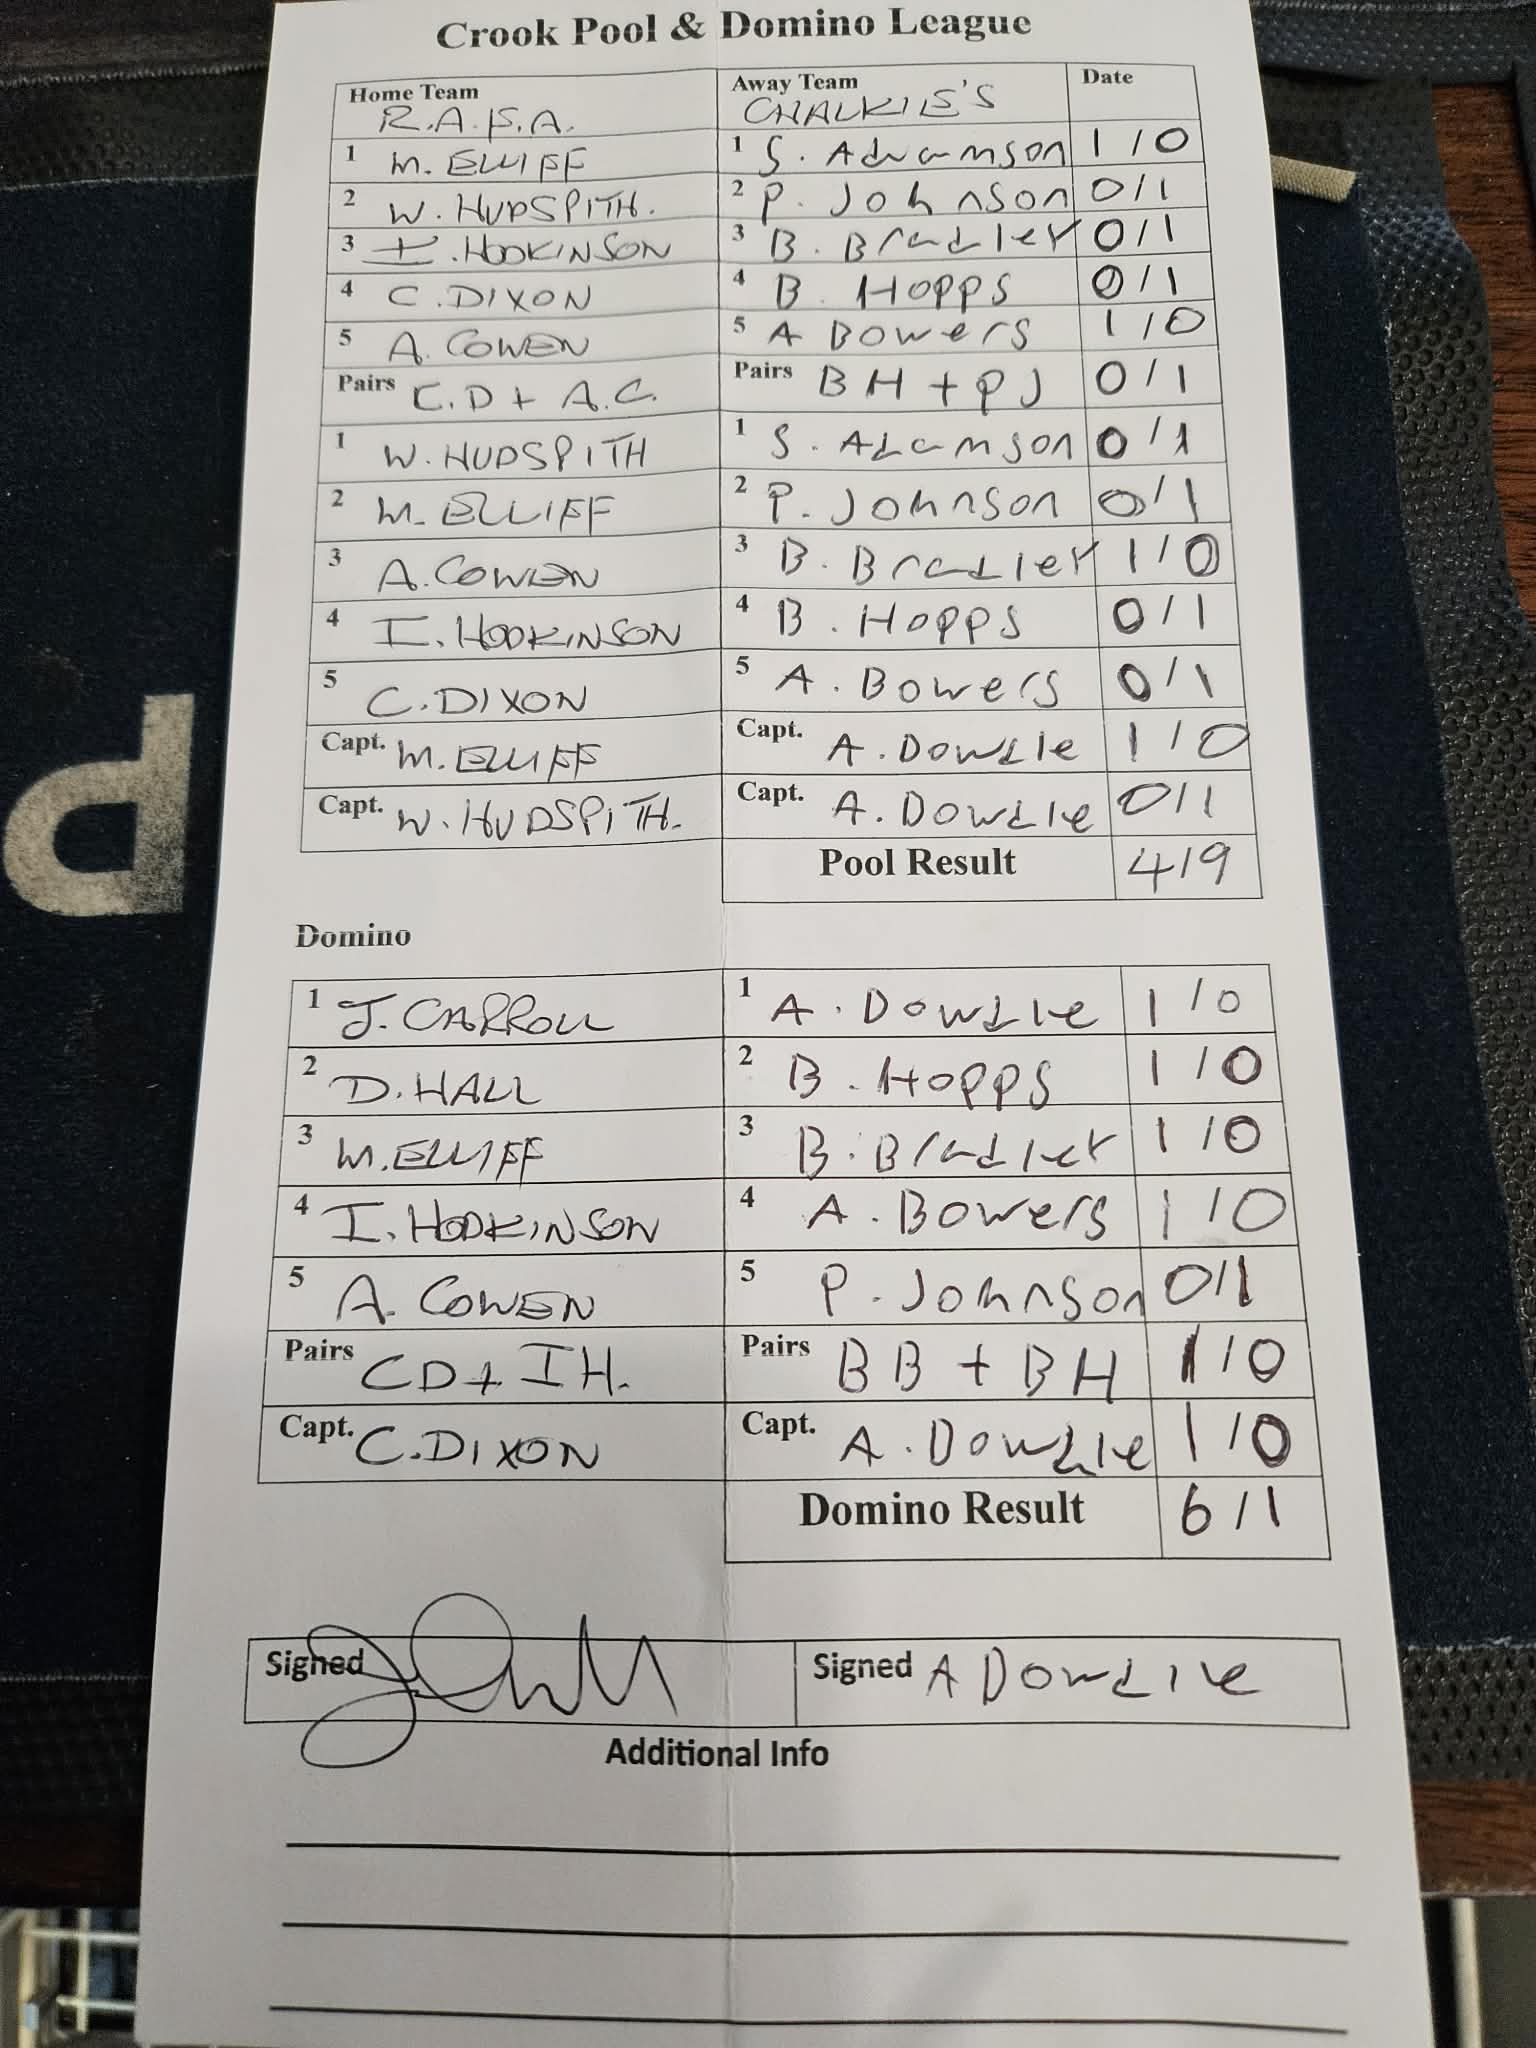 Crook Pool & Domino League
Home Team R.A.F.A. Away Team CHALKIE'S Date
1 M. ELLIFF 1 S. Adamson 1/0
2 W. HUDSPITH. 2 P. Johnson 0/1
3 I. HODKINSON 3 B. Bradley 0/1
4 C. DIXON 4 B. Hopps 0/1
5 A. COWEN 5 A Bowers 1/0
Pairs C.D + A.C. Pairs BH + PJ 0/1
1 W. HUDSPITH 1 S. Adamson 0/1
2 M. ELLIFF 2 P. Johnson 0/1
3 A. COWEN 3 B. Bradley 1/0
4 I. HODKINSON 4 B. Hopps 0/1
5 C. DIXON 5 A. Bowers 0/1
Capt. M. ELLIFF Capt. A. Dowdle 1/0
Capt. W. HUDSPITH. Capt. A. Dowdle 0/1
Pool Result 4/9
Domino
1 J. CARROLL 1 A. Dowdle 1/0
2 D. HALL 2 B. Hopps 1/0
3 M. ELLIFF 3 B. Bradley 1/0
4 I. HODKINSON 4 A. Bowers 1/0
5 A. COWEN 5 P. Johnson 0/1
Pairs CD + IH. Pairs BB + BH 1/0
Capt. C. DIXON Capt. A. Dowdle 1/0
Domino Result 6/1
Signed Signed A Dowdle
Additional Info